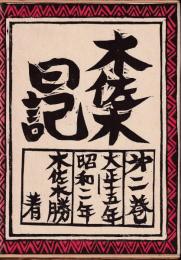 木佐木
日記
第二巻
大正十五年
昭和二年
木佐木勝
着